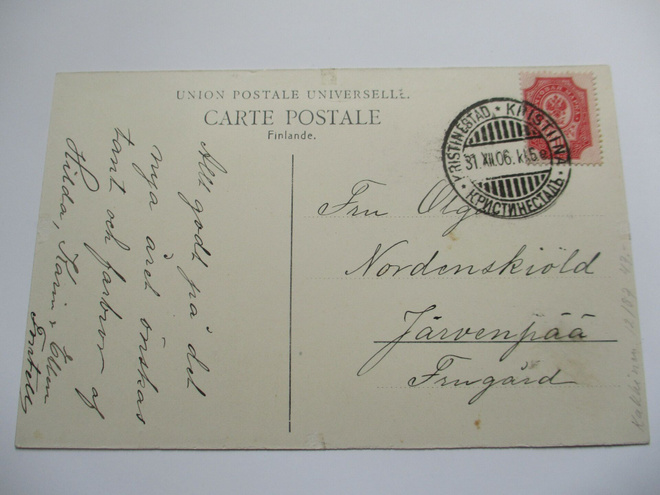 UNION POSTALE UNIVERSELLE.
CARTE POSTALE
Finlande.
KRISTINESTAD. KRISTIINA
31.XII.06. kl.5 e
КРИСТИНЕСТАДЪ
Allt godt på det
nya året önskas
tant och farbror af
Hilda, Karin & Ellen
Fru Olga
Nordenskiöld
Järvenpää
Frugård